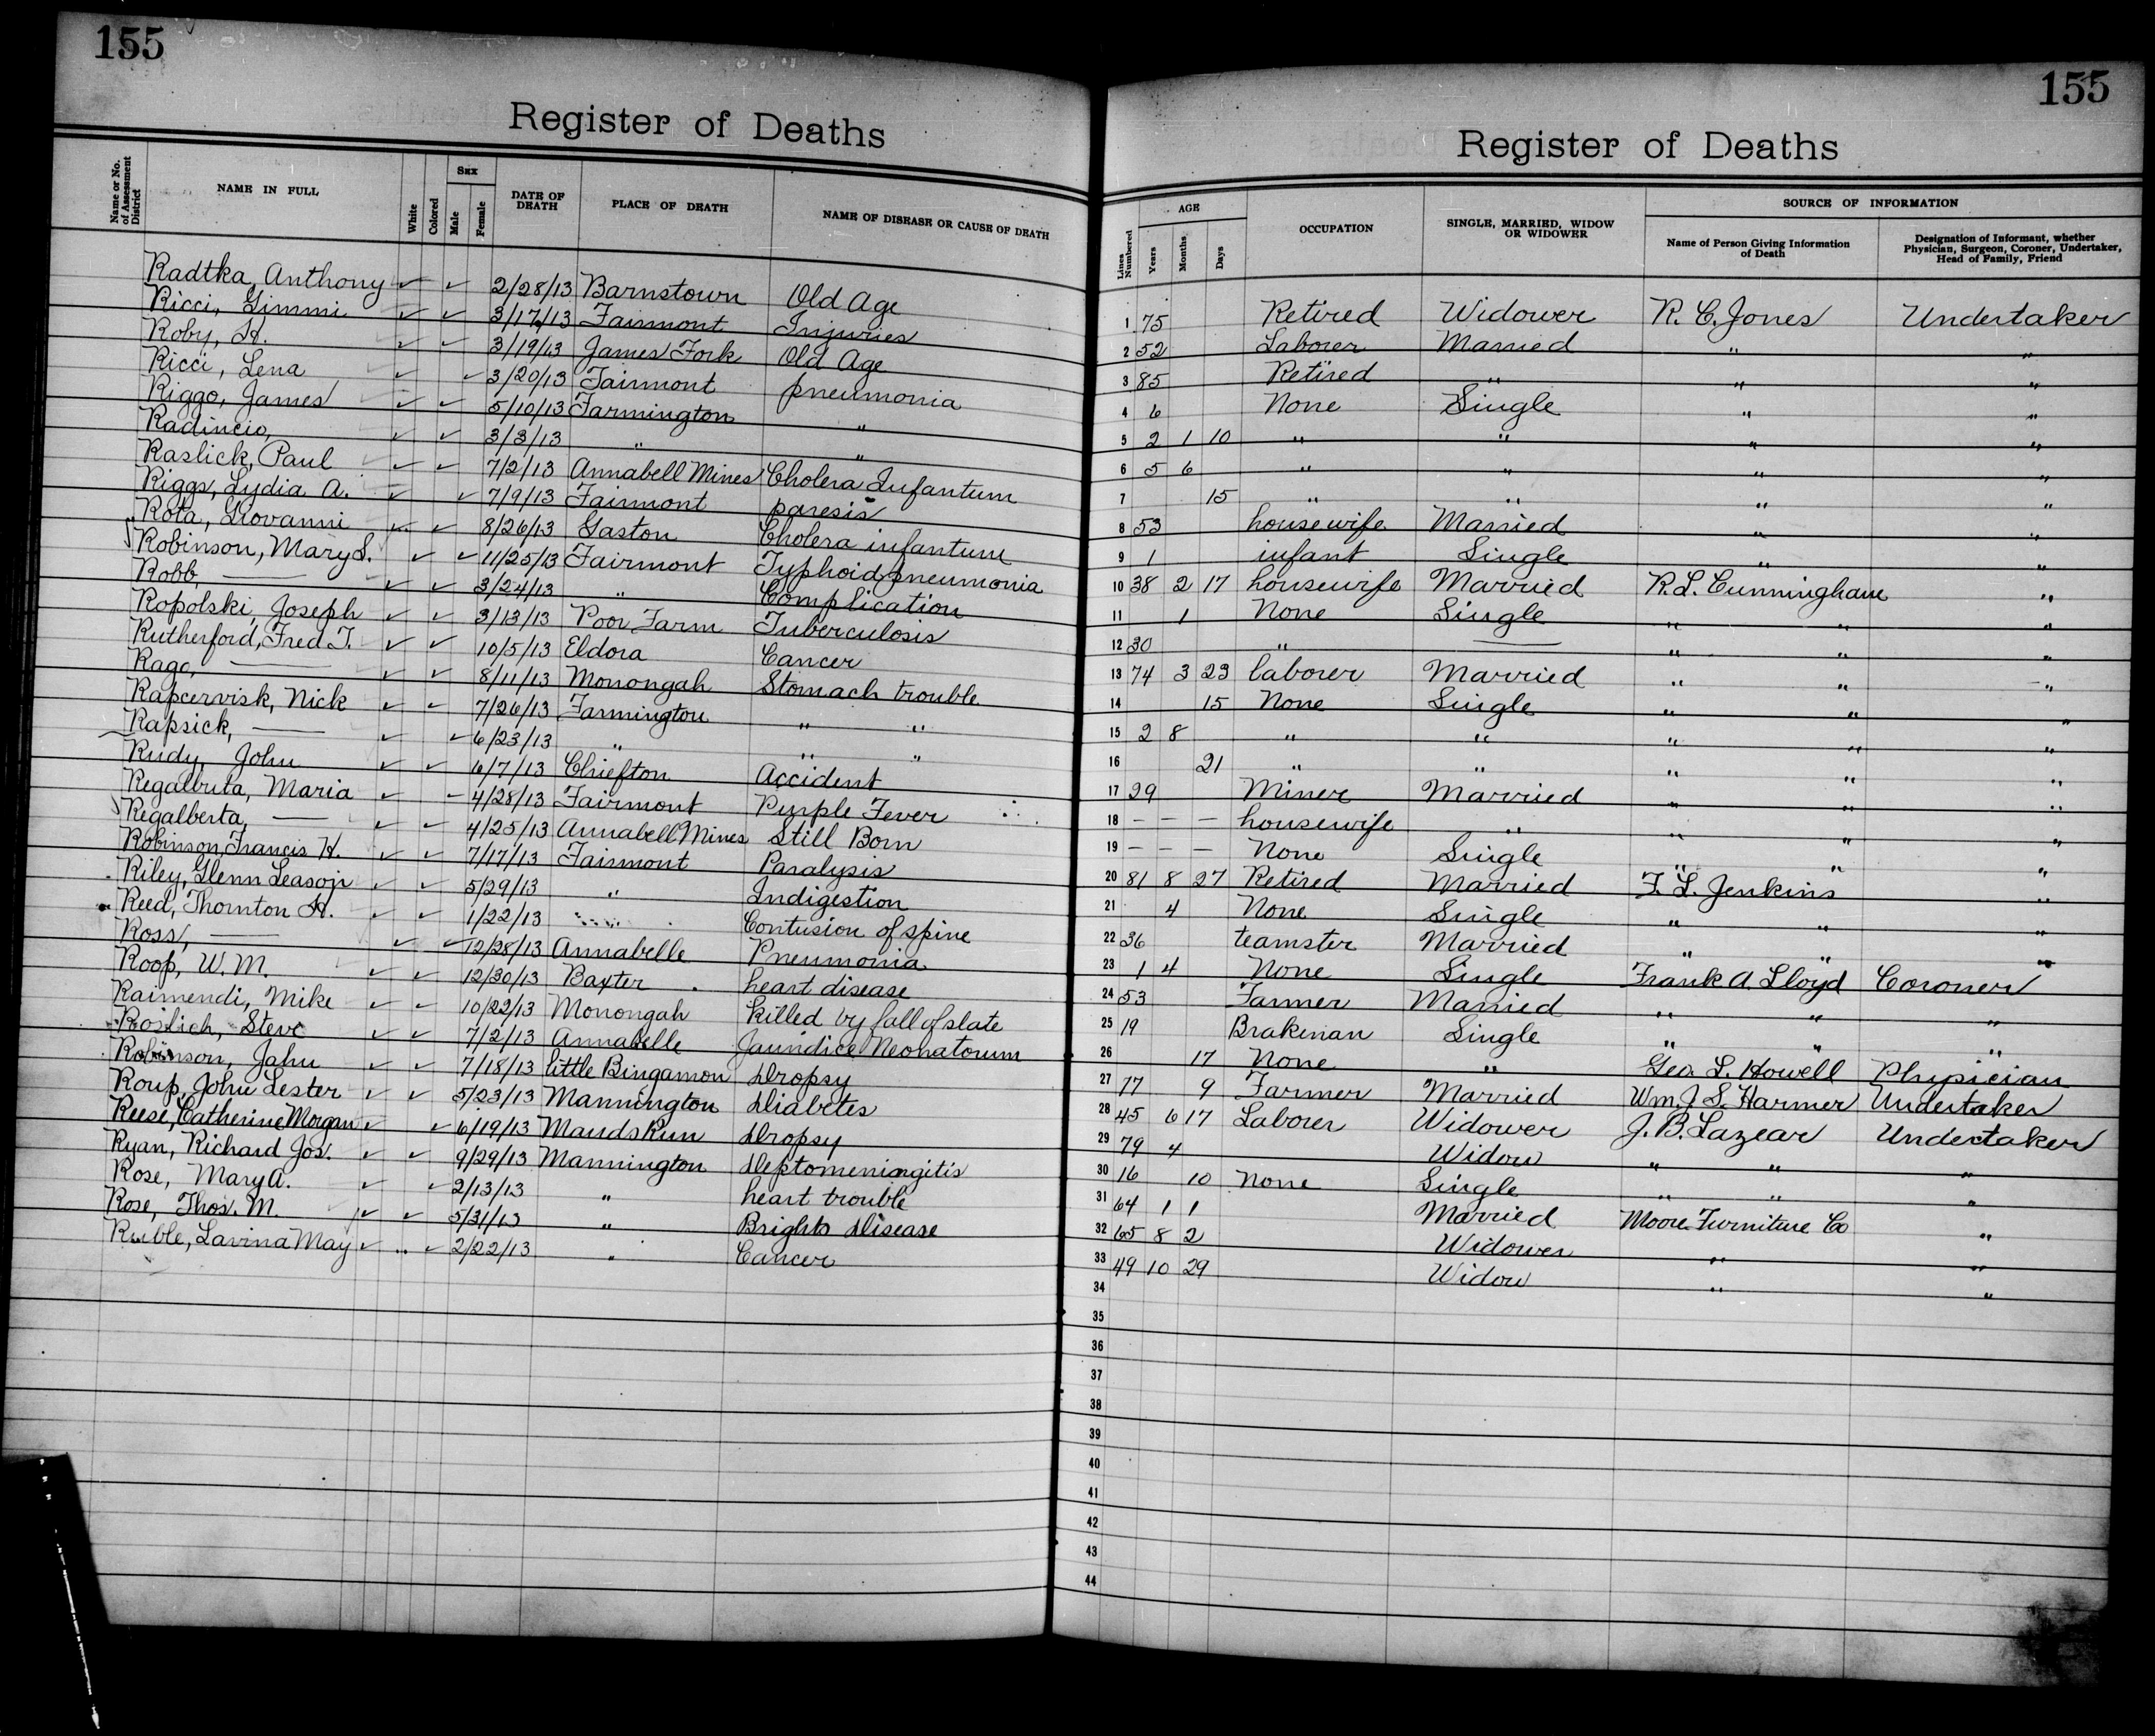 155
Register of Deaths
Name or No. of Assessment District
NAME IN FULL
White
Colored
SEX
Male
Female
DATE OF DEATH
PLACE OF DEATH
NAME OF DISEASE OR CAUSE OF DEATH
Radtka, Anthony ✓ ✓ 2/28/13 Barnstown Old Age
Ricci, Gimmi ✓ ✓ 3/17/13 Fairmont Injuries
Roby, H. ✓ ✓ 3/19/13 James Fork Old Age
Ricci, Lena ✓ ✓ 3/20/13 Fairmont pneumonia
Riggo, James ✓ ✓ 5/10/13 Farmington "
Radincio, ✓ ✓ 3/3/13 " "
Raslick, Paul ✓ ✓ 7/2/13 Annabell Mines Cholera Infantum
Riggs, Lydia A. ✓ ✓ 7/9/13 Fairmont paresis
Rota, Giovanni ✓ ✓ 8/26/13 Gaston Cholera infantum
Robinson, Mary S. ✓ ✓ 11/25/13 Fairmont Typhoid pneumonia
Robb, — ✓ ✓ 3/24/13 " Complication
Ropolski, Joseph ✓ ✓ 3/13/13 Poor Farm Tuberculosis
Rutherford, Fred T. ✓ ✓ 10/5/13 Eldora Cancer
Rago, — ✓ ✓ 8/11/13 Monongah Stomach trouble
Rapcervisk, Nick ✓ ✓ 7/26/13 Farmington " "
Rapsick, — ✓ ✓ 6/23/13 " " "
Rudy, John ✓ ✓ 6/7/13 Chiefton Accident
Regalbuta, Maria ✓ ✓ 4/28/13 Fairmont Purple Fever
Regalberta, — ✓ ✓ 4/25/13 Annabell Mines Still Born
Robinson, Francis H. ✓ ✓ 7/17/13 Fairmont Paralysis
Riley, Glenn Leason ✓ ✓ 5/29/13 " Indigestion
Reed, Thornton H. ✓ ✓ 1/22/13 " Contusion of spine
Ross, — ✓ ✓ 12/28/13 Annabelle Pneumonia
Roop, W. M. ✓ ✓ 12/30/13 Baxter heart disease
Raimendi, Mike ✓ ✓ 10/22/13 Monongah Killed by fall of slate
Roslich, Steve ✓ ✓ 7/2/13 Annabelle Jaundice Neonatorum
Robinson, John ✓ ✓ 7/18/13 little Bingamon Dropsy
Roup, John Lester ✓ ✓ 5/23/13 Mannington Diabetes
Reese, Catherine Morgan ✓ ✓ 6/19/13 Mauds Run Dropsy
Ryan, Richard Jos. ✓ ✓ 9/29/13 Mannington Leptomeningitis
Rose, Mary A. ✓ ✓ 2/13/13 " heart trouble
Rose, Thos. M. ✓ ✓ 5/31/13 " Brights Disease
Ruble, Lavina May ✓ ✓ 2/22/13 " Cancer
155
Register of Deaths
Lines Numbered
AGE
Years
Months
Days
OCCUPATION
SINGLE, MARRIED, WIDOW OR WIDOWER
SOURCE OF INFORMATION
Name of Person Giving Information of Death
Designation of Informant, whether Physician, Surgeon, Coroner, Undertaker, Head of Family, Friend
1 75 Retired Widower R. C. Jones Undertaker
2 52 Laborer Married " "
3 85 Retired " " "
4 6 None Single " "
5 2 1 10 " " " "
6 5 6 " " " "
7 15 " " " "
8 53 housewife Married " "
9 1 infant Single " "
10 38 2 17 housewife Married R. L. Cunningham "
11 1 None Single " " "
12 30 " — " " "
13 74 3 23 laborer Married " " "
14 15 None Single " " "
15 2 8 " " " " "
16 21 " " " " "
17 29 Miner Married " " "
18 — — — housewife " " " "
19 — — — None Single " " "
20 81 8 27 Retired Married F. L. Jenkins "
21 4 None Single " " "
22 36 teamster Married " " "
23 1 4 None Single Frank A. Lloyd Coroner
24 53 Farmer Married " " "
25 19 Brakeman Single " " "
26 17 None " Geo. L. Howell Physician
27 77 9 Farmer Married Wm. J. S. Harmer Undertaker
28 45 6 17 Laborer Widower J. B. Lazear Undertaker
29 79 4 Widow " " "
30 16 10 None Single " " "
31 64 1 1 Married Moore Furniture Co "
32 65 8 2 Widower " "
33 49 10 29 Widow " "
34
35
36
37
38
39
40
41
42
43
44